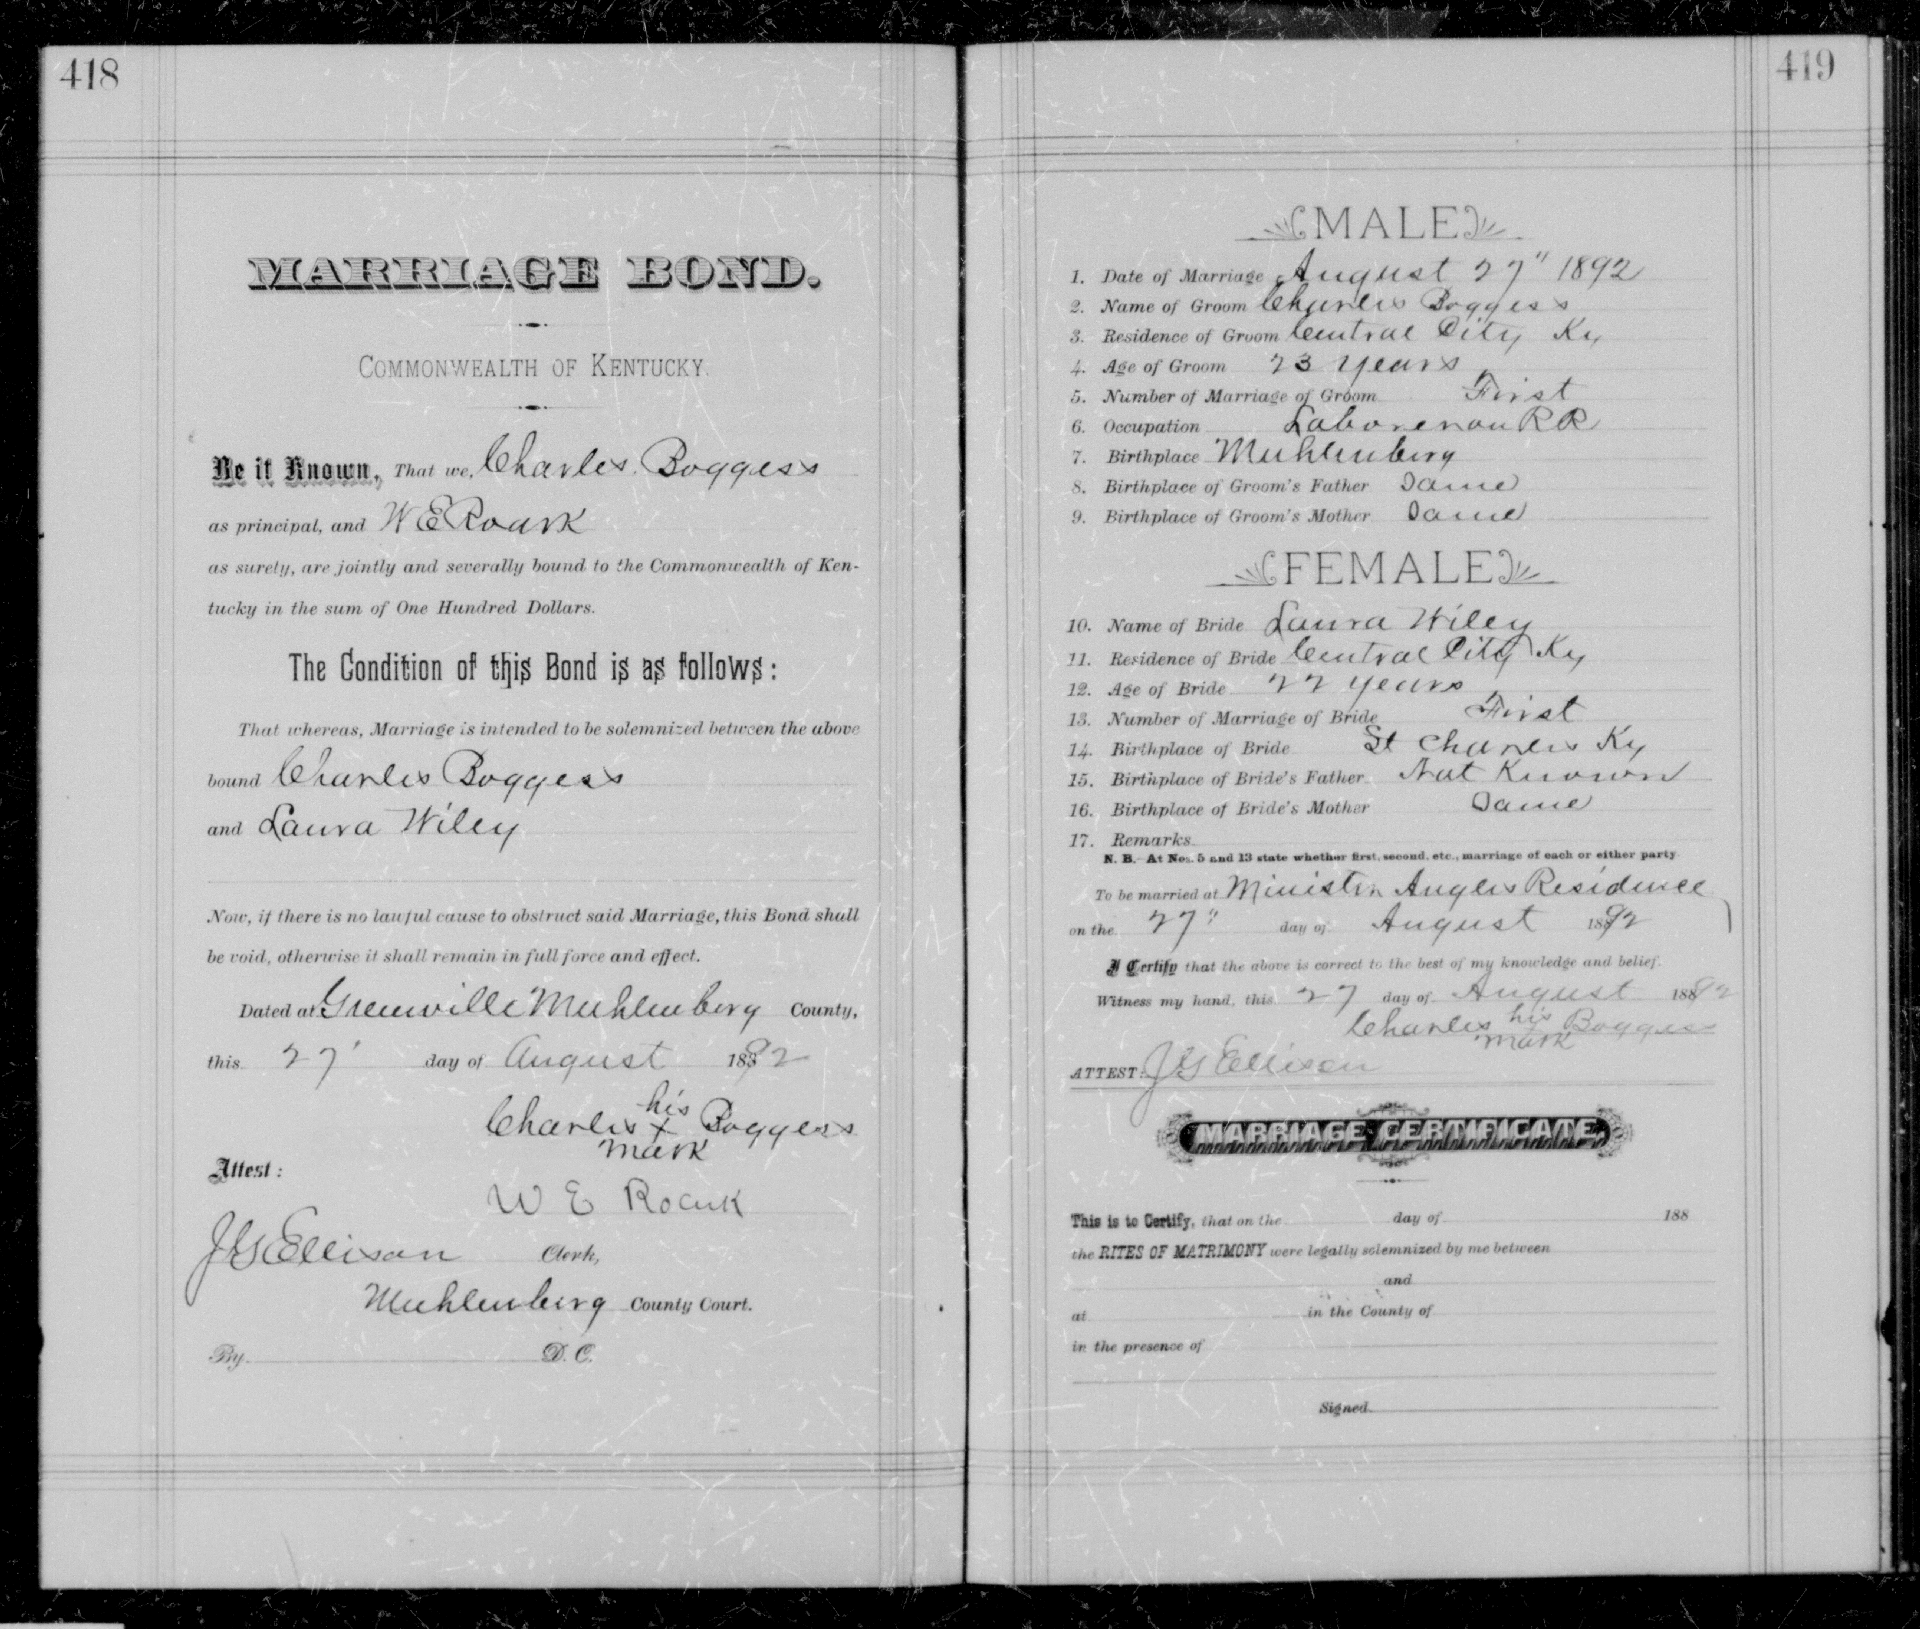 418
MARRIAGE BOND.
COMMONWEALTH OF KENTUCKY.
Be it Known, That we, Charles Boggess
as principal, and W E Roark
as surety, are jointly and severally bound to the Commonwealth of Ken-
tucky in the sum of One Hundred Dollars.
The Condition of this Bond is as follows:
That whereas, Marriage is intended to be solemnized between the above
bound Charles Boggess
and Laura Wiley
Now, if there is no lawful cause to obstruct said Marriage, this Bond shall
be void, otherwise it shall remain in full force and effect.
Dated at Greenville Muhlenberg County,
this 27 day of August 1892
his
Charles x Boggess
mark
Attest:
W E Roark
J G Ellison Clerk,
Muhlenberg County Court.
By D. C.
419
MALE
1. Date of Marriage August 27" 1892
2. Name of Groom Charles Boggess
3. Residence of Groom Central City Ky
4. Age of Groom 23 years
5. Number of Marriage of Groom First
6. Occupation Laborer on R R
7. Birthplace Muhlenberg
8. Birthplace of Groom's Father Same
9. Birthplace of Groom's Mother Same
FEMALE
10. Name of Bride Laura Wiley
11. Residence of Bride Central City Ky
12. Age of Bride 22 years
13. Number of Marriage of Bride First
14. Birthplace of Bride St Charles Ky
15. Birthplace of Bride's Father Not Known
16. Birthplace of Bride's Mother Same
17. Remarks
N. B. At Nos. 5 and 13 state whether first, second, etc., marriage of each or either party
To be married at Minister Angles Residence
on the 27" day of August 1892
I Certify that the above is correct to the best of my knowledge and belief.
Witness my hand, this 27 day of August 1892
his
Charles Boggess
mark
ATTEST: J G Ellison
MARRIAGE CERTIFICATE.
This is to Certify, that on the day of 188
the RITES OF MATRIMONY were legally solemnized by me between
and
at in the County of
in the presence of
Signed